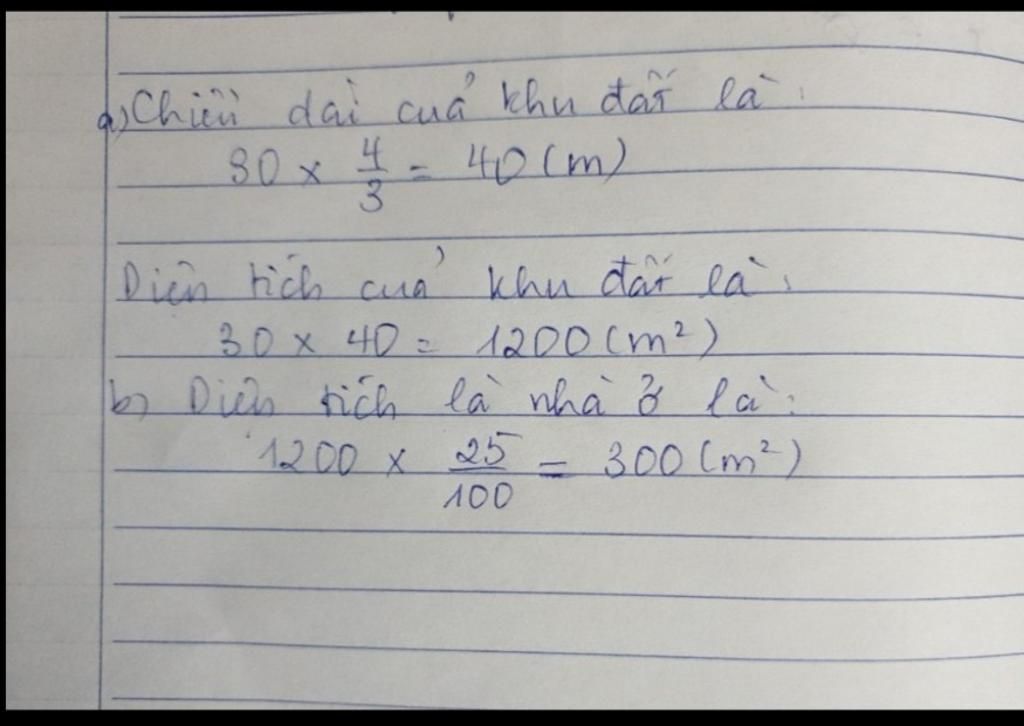 a) Chiều dài của khu đất là:
30 × 4/3 = 40 (m)
Diện tích của khu đất là:
30 × 40 = 1200 (m²)
b) Diện tích là nhà ở là:
1200 × 25/100 = 300 (m²)